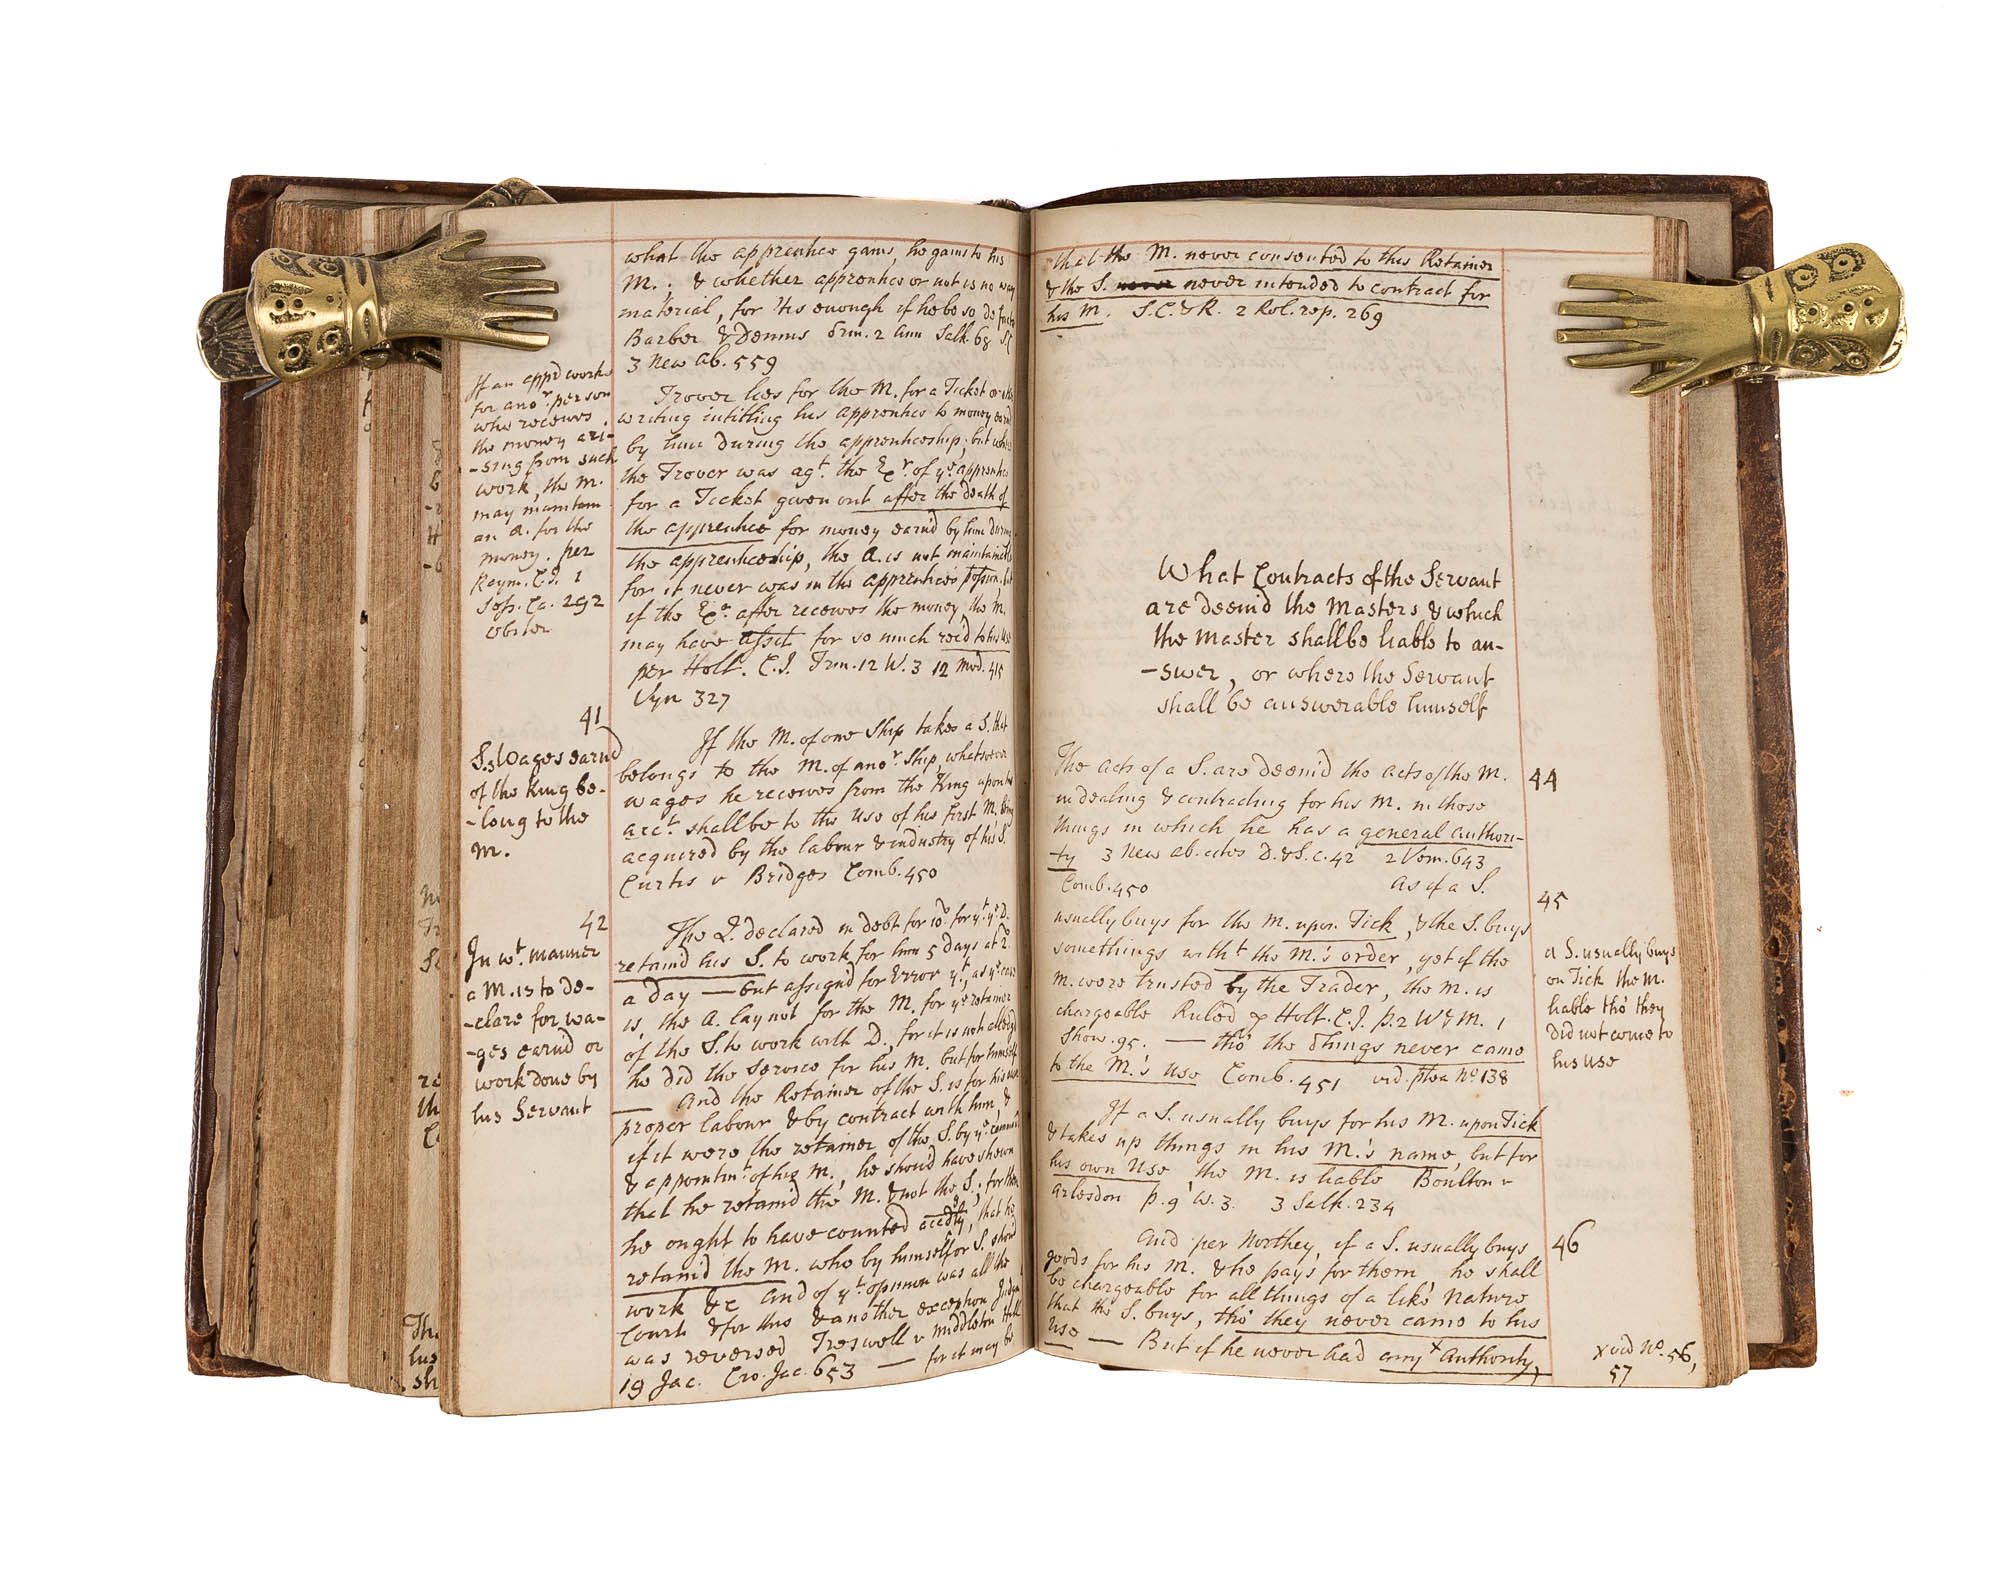 what the apprentice gains, he gains to his
M. & whether apprentice or not is no way
material, for 'tis enough if he be so de facto
Barber & Dennis Trin. 2 Ann Salk. 68 S.C
3 New ab. 559
If an app'd works
for ano.r person
who receives
the money ari-
-sing from such
work, the M.
may maintain
an A. for the
money. per
Raym. C.J. 1
Sess. Ca. 292
Trover lies for the M. for a Ticket or
writing intitling his apprentice to money earnd
by him during the apprenticeship, but where
the Trover was ag.t the Ex.r of y.e apprentice
for a Ticket given out after the death of
the apprentice for money earn'd by him during
the apprenticeship, the A. is not maintainable
for it never was in the apprentices possion, but
if the Ex.r after receives the money the M.
may have assit for so much rec'd to his use
per Holt. C.J. Trin. 12 W. 3 12 mod. 415
Vyn 327
41
S.s Wages earn'd
of the King be-
-long to the
M.
If the M. of one Ship takes a S. that
belongs to the M. of ano.r Ship, whatsoever
wages he receives from the King upon his
acc.t shall be to the use of his first M. being
acquired by the labour & industry of his S.
Curtis v Bridges Comb. 450
42
In w.t manner
a M. is to de-
-clare for wa-
-ges earn'd or
work done by
his Servant
The P. declared in debt for 10.s for y.t y.e D.
retain'd his S. to work for him 5 Days at 2.s
a day — but assign'd for Error y.t, as y.e case
is, the A. lay not for the M. for y.e retainer
of the S. to work with D., for it is not alledg'd
he did the service for his M. but for himself
— And the Retainer of the S. is for his own
proper labour & by contract with him, &
if it were the retainer of the S. by y.e command
& appointm.t of his M., he shou'd have shewn
that he retain'd the M. & not the S.; for then
he ought to have counted accdgly, that he
retain'd the M. who by himself or S. shou'd
work &c And of y.t opinion was all the
Court & for this & another exception Judgm.t
was reversed Treswell v Middleton Hill
19 Jac. Cro. Jac. 653 — for it may be
that the M. never consented to this Retainer
& the S. never never intended to contract for
his M. S.C. & R. 2 Rol. rep. 269
What Contracts of the Servant
are deem'd the Masters & which
the Master shall be liable to an-
-swer, or where the Servant
shall be answerable himself
44
The acts of a S. are deem'd the acts of the M.
in dealing & contracting for his M. in those
things in which he has a general authori-
-ty 3 New ab. cites D. & S. c. 42 2 Vern. 643
Comb. 450 As if a S.
45
a S. usually buys
on Tick the M.
liable tho' they
did not come to
his use
usually buys for the M. upon Tick, & the S. buys
somethings with.t the M.'s order, yet if the
M. were trusted by the Trader, the M. is
chargeable Ruled p Holt. C.J. p. 2 W & M. 1
Show. 95. — tho' the Things never came
to the M.'s use Comb. 451 vid. plea No. 138
If a S. usually buys for his M. upon Tick
& takes up things in his M.'s name, but for
his own Use, the M. is liable Boulton v
Arlesdon p. 9 W. 3. 3 Salk. 234
46
And per Northey, if a S. usually buys
goods for his M. & he pays for them he shall
be chargeable for all things of a like Nature
that the S. buys, tho' they never came to his
Use — But if he never had any x Authority,
x vid No. 56,
57